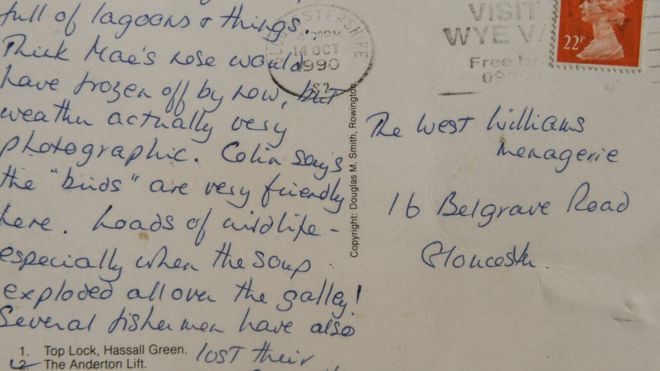 full of lagoons & things.
Think Mae's nose would
have frozen off by now, but
weather actually very
photographic. Colin says
the "birds" are very friendly
here. Loads of wildlife -
especially when the soup
exploded all over the galley!
Several fishermen have also
lost their
1. Top Lock, Hassall Green.
2. The Anderton Lift.
Copyright: Douglas M. Smith, Rowington.
14 OCT
1990
VISIT
WYE V
Free
22P
The West Williams
Menagerie
16 Belgrave Road
Gloucester.